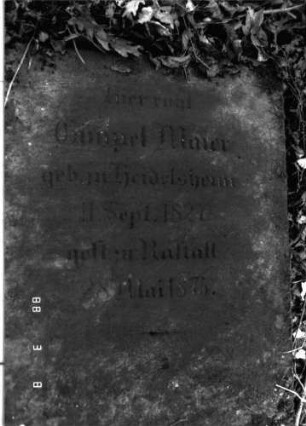 Hier ruht
Gumpel Maier
geb. zu Heidelsheim
11 Sept. 1821
gest. zu Rastatt
28 Mai
8 3 88